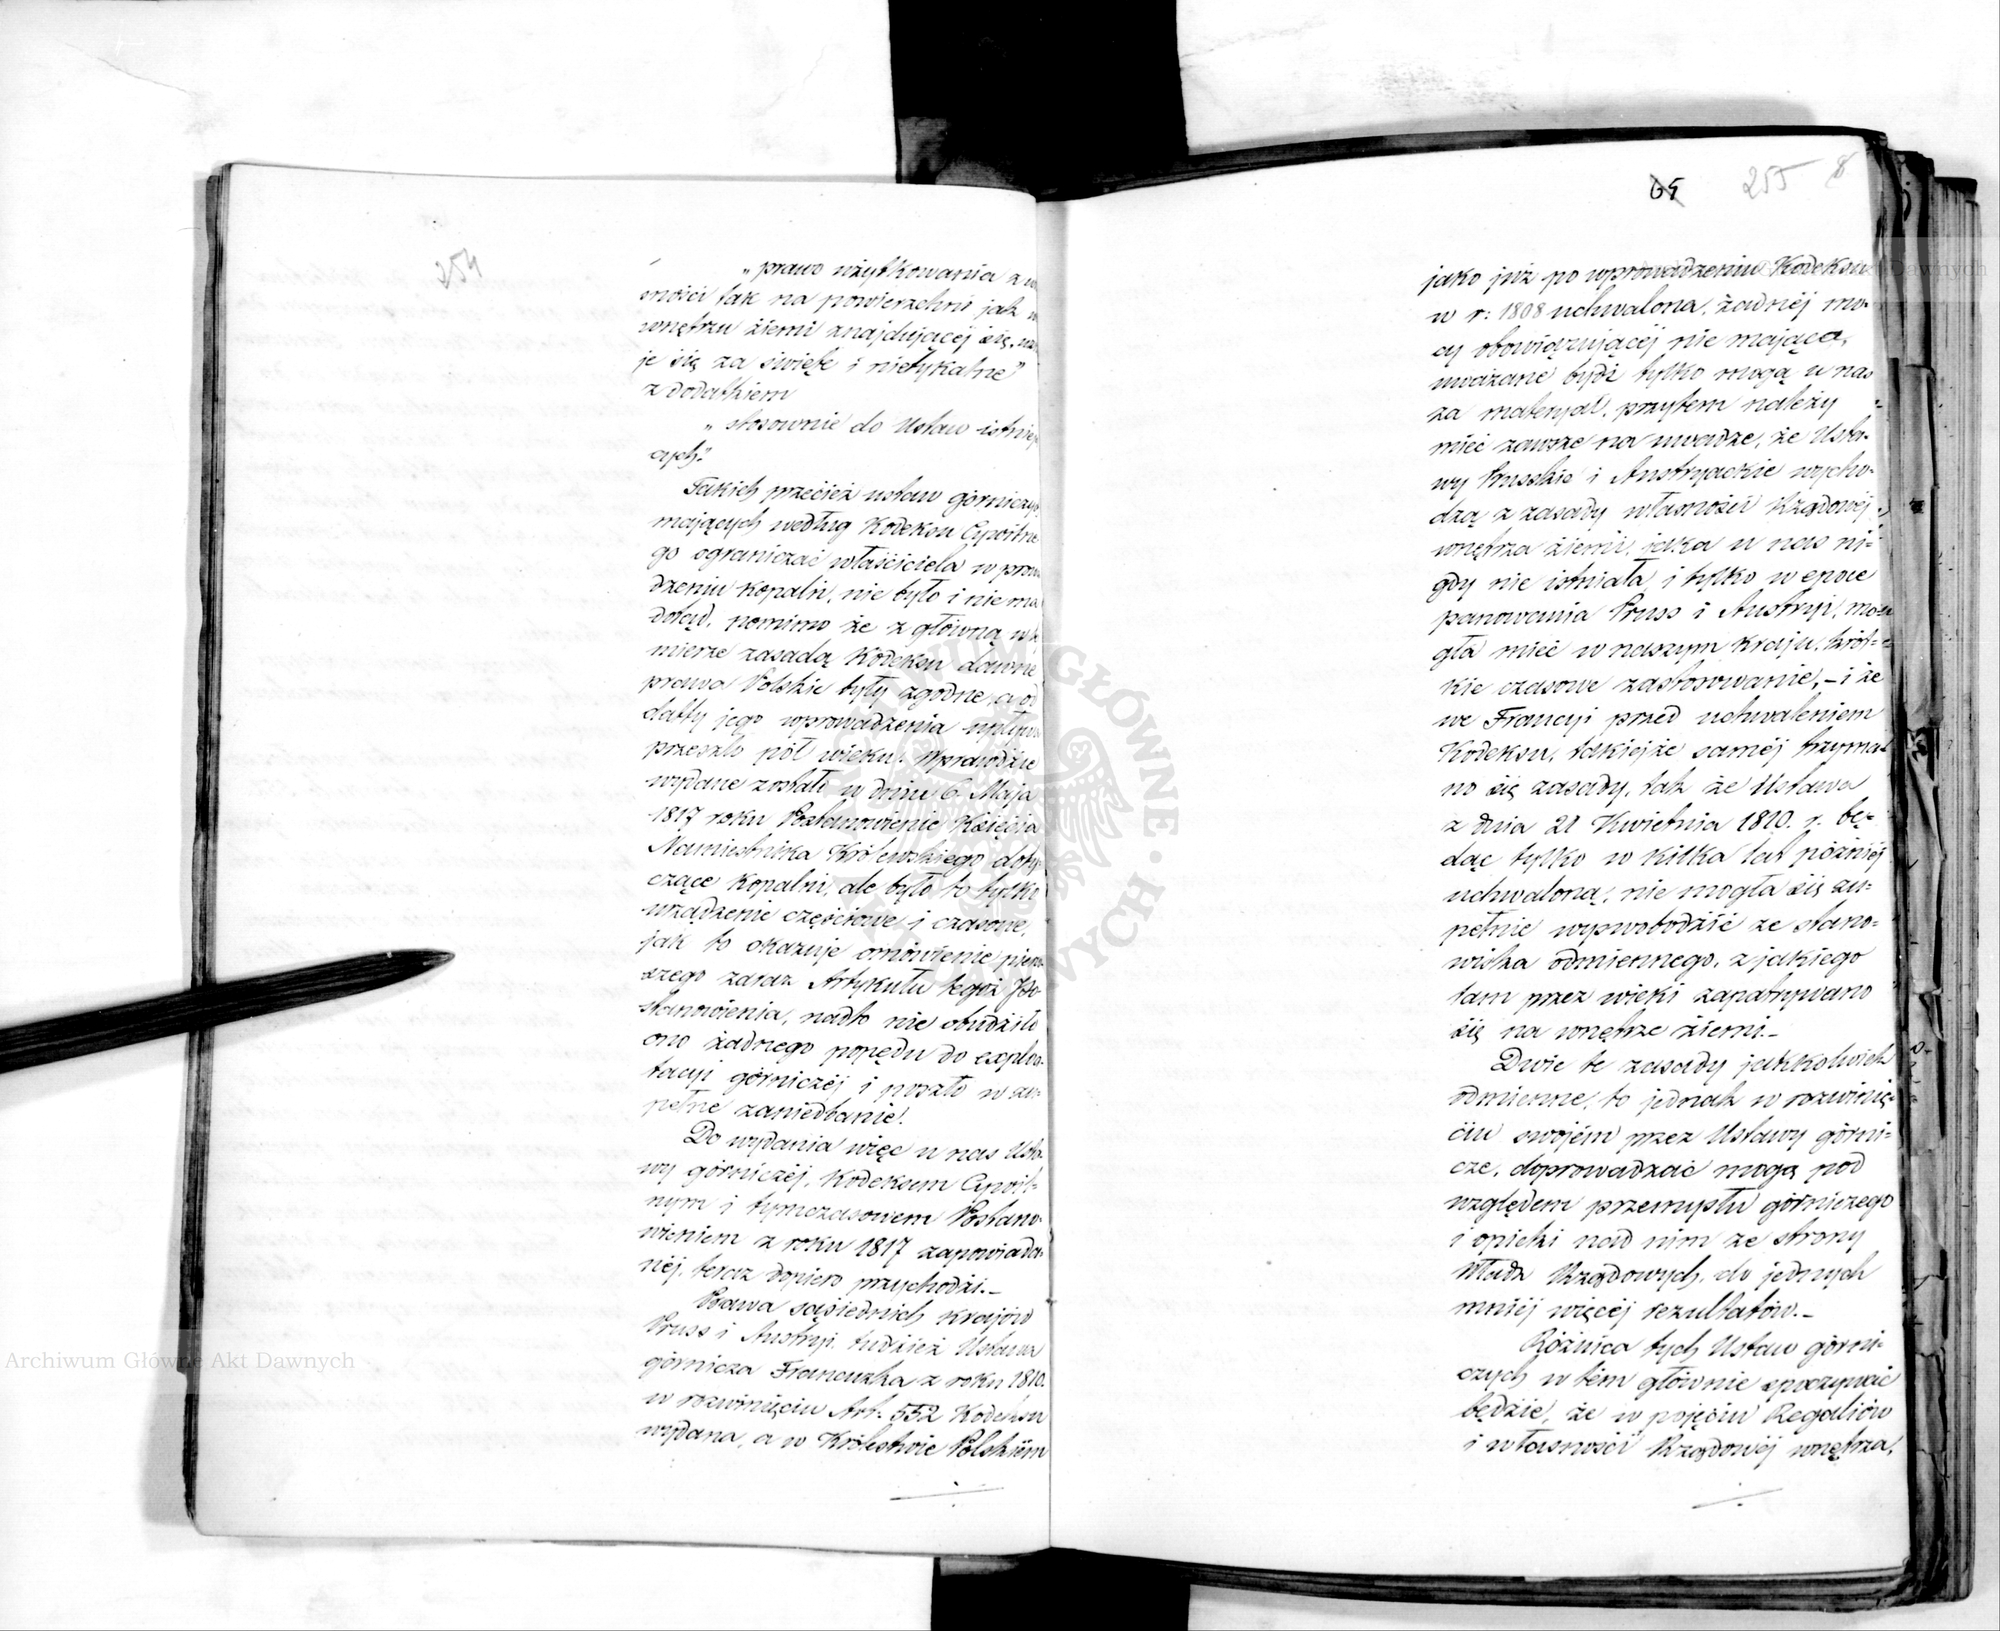 254
„prawo użytkowania z w
sności tak na powierzchni jak w
wnętrzu ziemi znajdującéj się, uzna
je się za święte i nietykalne”
z dodatkiem
„stosownie do Ustaw istnieją
cych.”
Takich przecież ustaw górniczych
mających według Kodeksu Cywilne
go ograniczać właściciela w prowa
dzeniu kopalń, nie było i nie ma
dotąd, pomimo że z główną w t
mierze zasadą Kodeksu dawne
prawa Polskie były zgodne, a od
datty jego wprowadzenia upłynęło
przeszło pół wieku. Wprawdzie
wydane zostało w dniu 6. Maja
1817 roku Postanowienie Księcia
Namiestnika Królewskiego doty-
czące kopalni, ale było to tylko
urządzenie częściowe i czasowe,
jak to okazuje omówienie pierw
szego zaraz Artykułu tegoż Po-
stanowienia, nadto nie obudziło
ono żadnego popędu do exploa-
tacyi górniczéj i poszło w zu-
pełne zaniedbanie!
Do wydania więc u nas Usta
wy górniczéj, Kodeksem Cywil-
nym i tymczasowem Postano-
wieniem z roku 1817 zapowiada-
néj, teraz dopiero przychodzi.-
Prawa sąsiednich krajów
Pruss i Austryi, tudzież Ustawa
górnicza Francuzka z roku 1810.
w rozwinięciu Art: 552 Kodeksu
wydana, a w Królestwie Polskiém
65 255 8
jako już po wprowadzeniu Kodeksu
w r: 1808 uchwalona, żadnéj mo-
cy obowiązującéj nie mająca,
uważane bydź tylko mogą u nas
za materyał, przytem należy
mieć zawsze na uwadze, że Usta-
wy Prusskie i Austryackie wycho-
dzą z zasady własności Rządowéj
wnętrza ziemi, jaka u nas ni-
gdy nie istniała i tylko w epoce
panowania Pruss i Austryi, mo-
gła mieć w naszym kraju, krót-
kie czasowe zastosowanie, - i że
we Francyi przed uchwaleniem
Kodeksu, takiejże saméj trzyma-
no się zasady, tak że Ustawa
z dnia 21 Kwietnia 1810. r. bę-
dąc tylko w kilka lat późniéj
uchwaloną, nie mogła się zu-
pełnie wyswobodzić ze stano-
wiska odmiennego, z jakiego
tam przez wieki zapatrywano
się na wnętrze ziemi.-
Dwie te zasady jakkolwiek
odmienne, to jednak w rozwinię-
ciu swojém przez Ustawy górni-
cze, doprowadzać mogą pod
względem przemysłu górniczego
i opieki nad nim ze strony
Władz Rządowych, do jednych
mniéj więcéj rezultatów.-
Różnica tych Ustaw górni-
czych w tém głównie spoczywać
będzie, że w pojęciu Regaliów
i własności Rządowéj wnętrza,
Archiwum Główne Akt Dawnych
ARCHIWUM GŁÓWNE AKT DAWNYCH